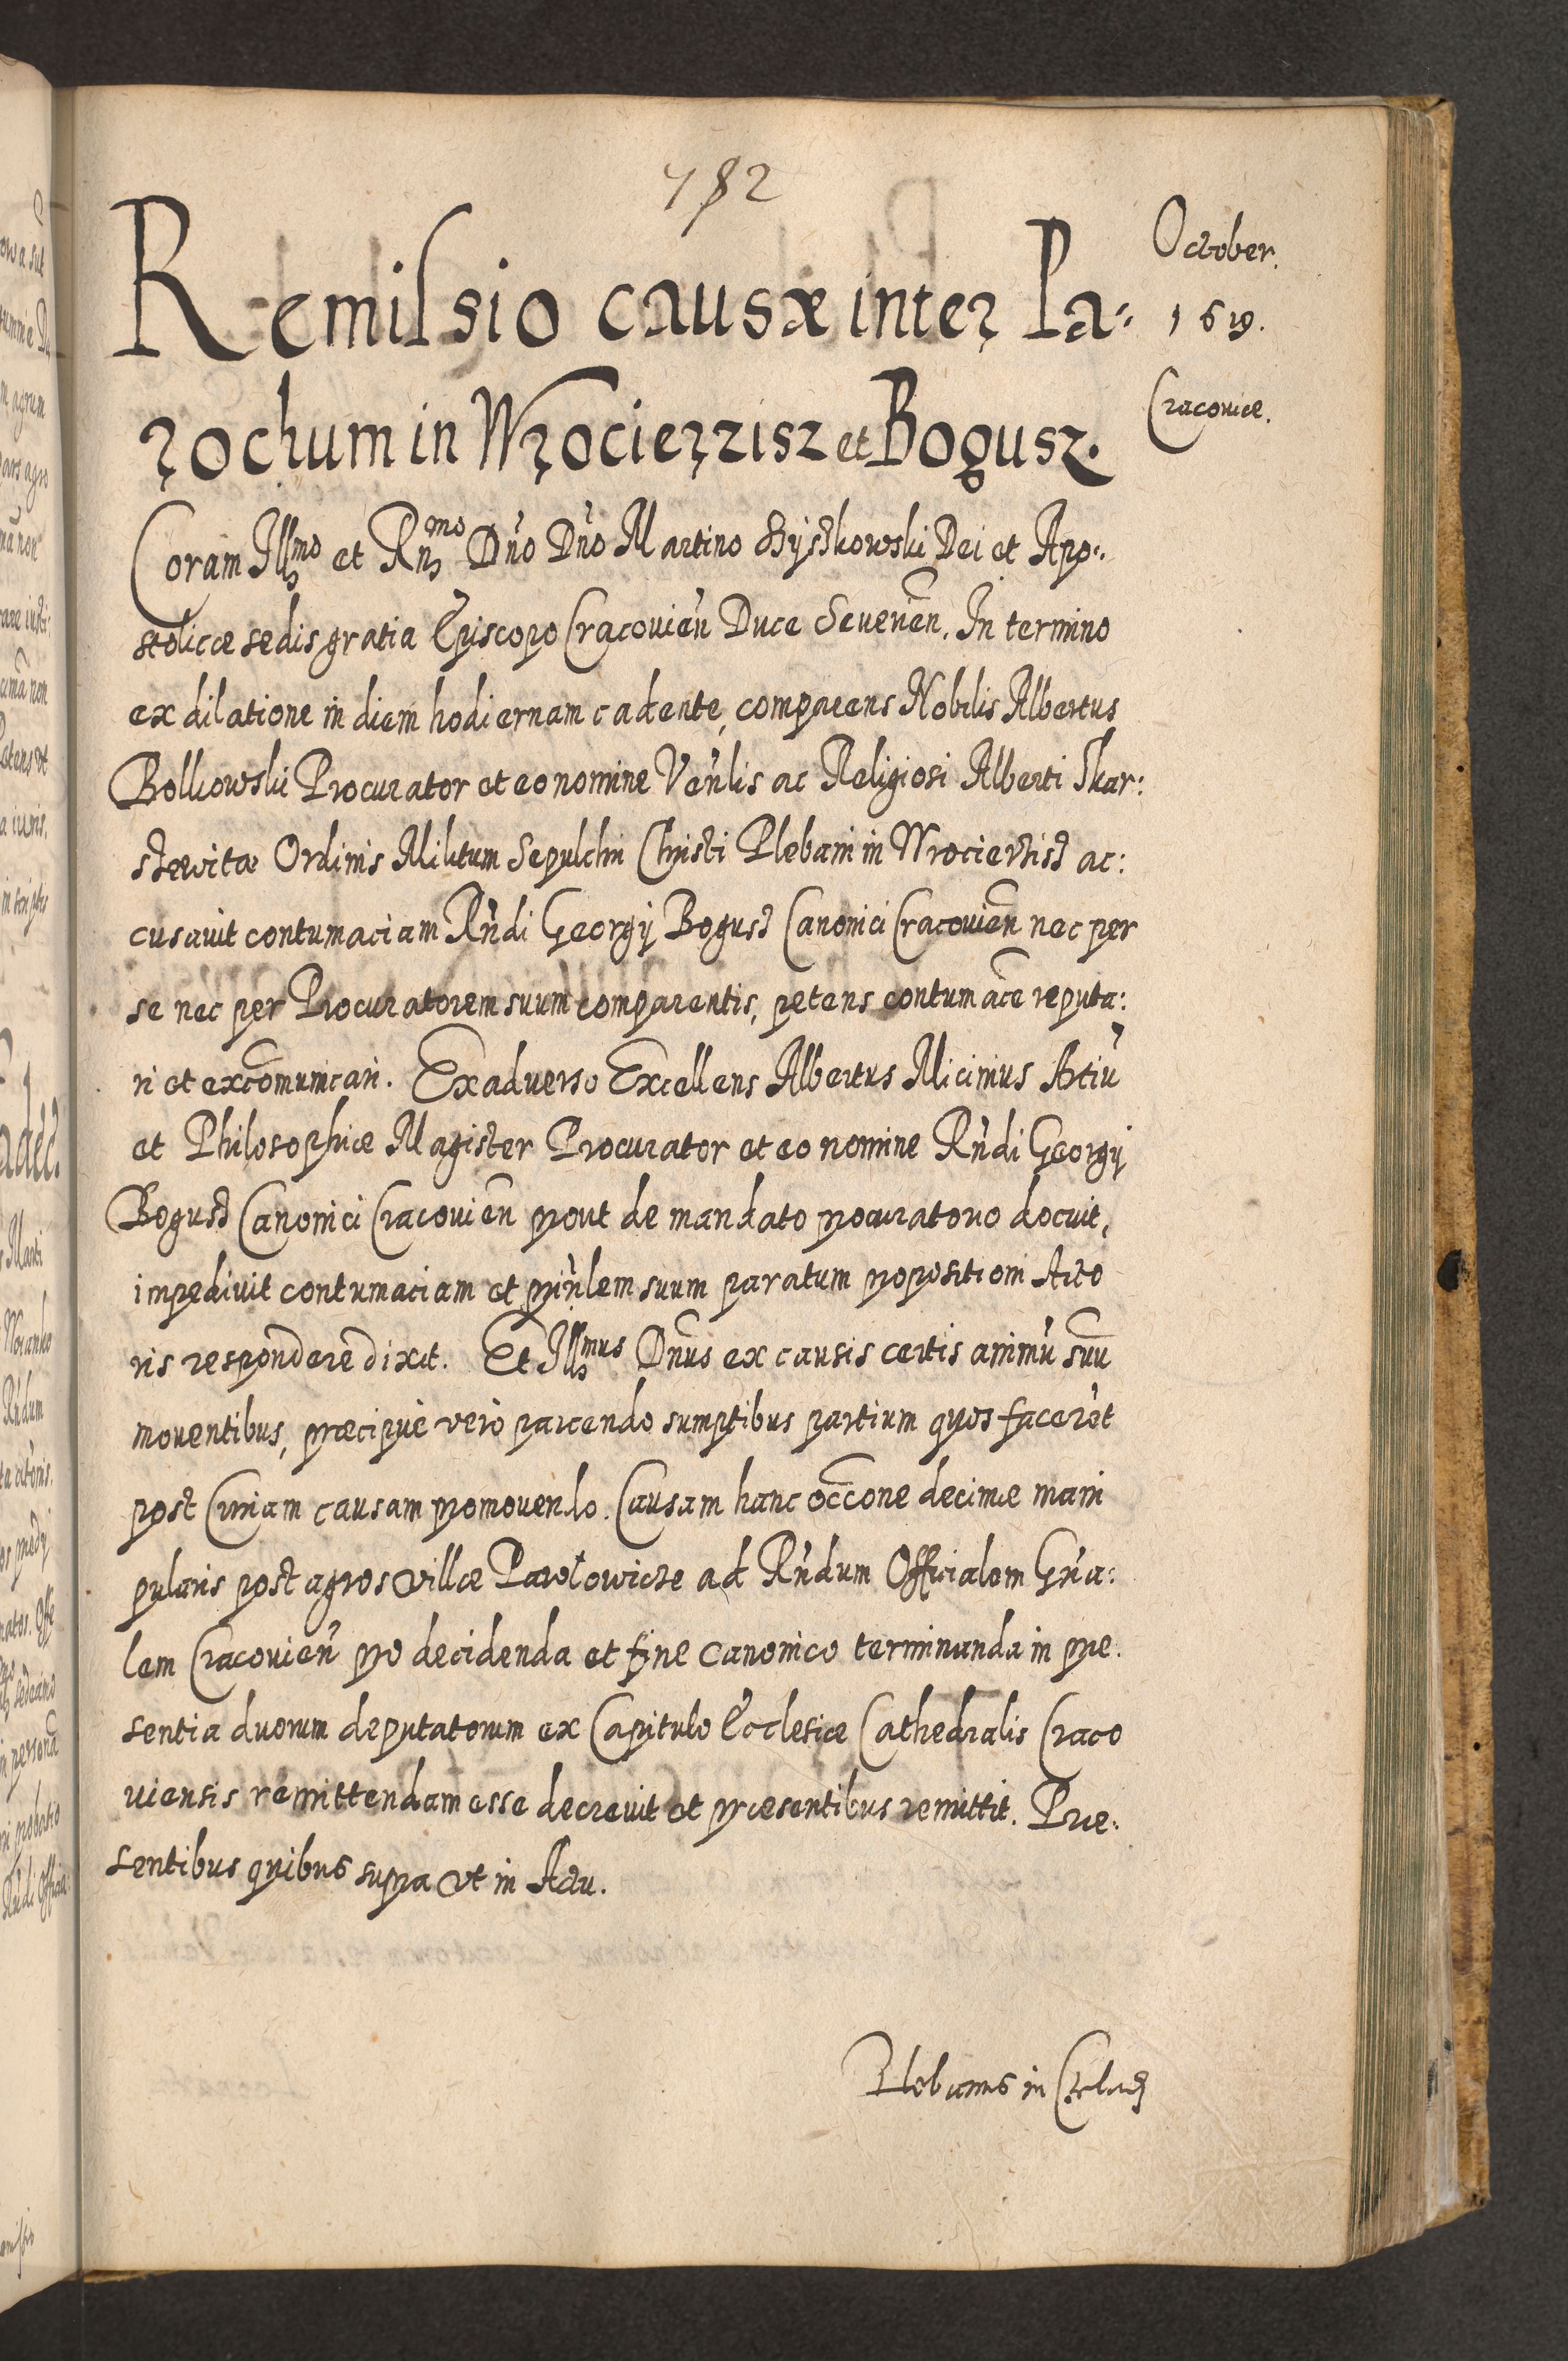 782
October.
1619.
Cracoviæ.
Remissio causæ inter Pa-
rochum in Wrocierzisz et Bogusz.
Coram Illmo et Rnmo Dño Dño Martino Szyszkowski Dei et Apo:
stolicæ sedis gratia Episcopo Cracovieñ Duce Severieñ. In termino
ex dilatione in diem hodiernam cadente, comparens Nobilis Albertus
Bolkowski Procurator et eo nomine Veñlis ac Religiosi Alberti Skar:
szewita Ordinis Militum Sepulchri Christi Plebani in Wrocierzisz ac:
cusavit contumaciam Rñdi Georgij Bogusz Canonici Cracovieñ nec per
se nec per Procuratorem suum comparentis, petens contumacẽ reputa:
ri et excõmunicari. Ex adverso Excellens Albertus Micinius Artiũ
et Philosophiæ Magister Procurator et eo nomine Rñdi Georgij
Bogusz Canonici Cracovieñ prout de mandato procuratorio docuit,
impedivit contumaciam et priñlem suum paratum propositioni Acto
ris respondere dixit. Et Illmus Dñus ex causis certis animũ suũ
moventibus, præcipuè verò parcendo sumptibus partium quos facerẽt
post Curiam causam promovendo. Causam hanc occõne decimæ mani
pularis post agros villæ Pawłowicze ad Rñdum Officialem Gña:
lem Cracovieñ pro decidenda et fine canonico terminanda in præ:
sentia duorum deputatorum ex Capitulo Ecclesiæ Cathedralis Craco
viensis remittendam esse decrevit et præsentibus remittit. Præ:
sentibus quibus supra vt in Actu.
Plebanus in